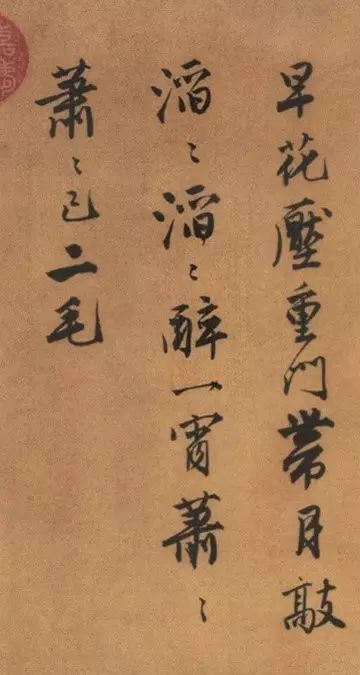 早花壓重門帶月敲
滔〻滔〻醉一宵蕭〻
蕭〻已二毛